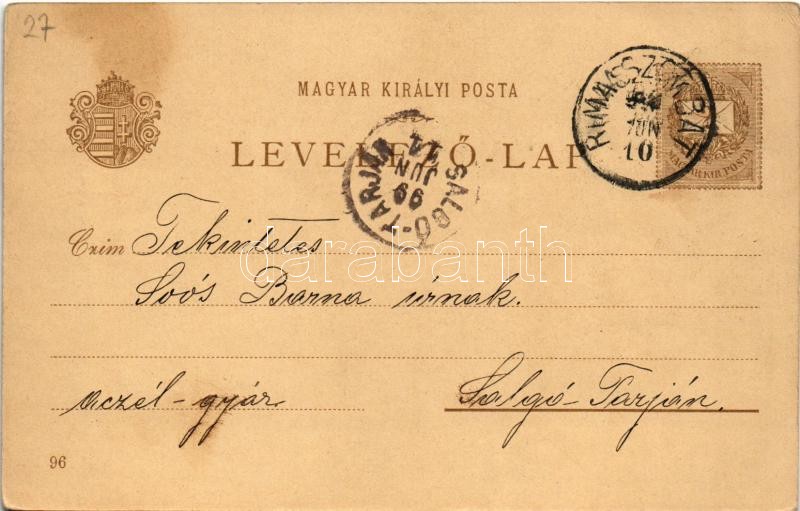 27
MAGYAR KIRÁLYI POSTA
LEVELEZŐ-LAP
RIMASZOMBAT
JUN
10
MAGYAR KIR. POSTA
SALGÓ-TARJÁN
99
JUN
11
Czim Tekintetes
Soós Barna úrnak.
aczél-gyár
Salgó-Tarján.
96
darabanth